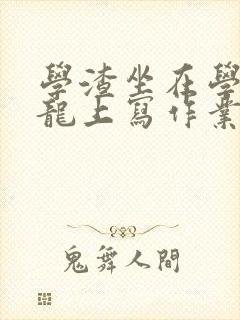 學渣坐在學
龍上寫作業
鬼舞人間